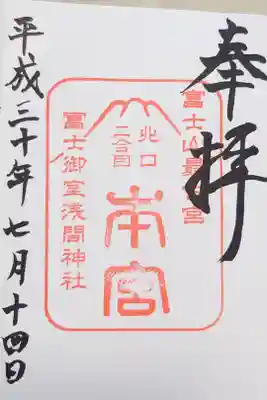 奉拝
富士山最古宮
北口
二合目
本宮
冨士御室浅間神社
平成三十年七月十四日